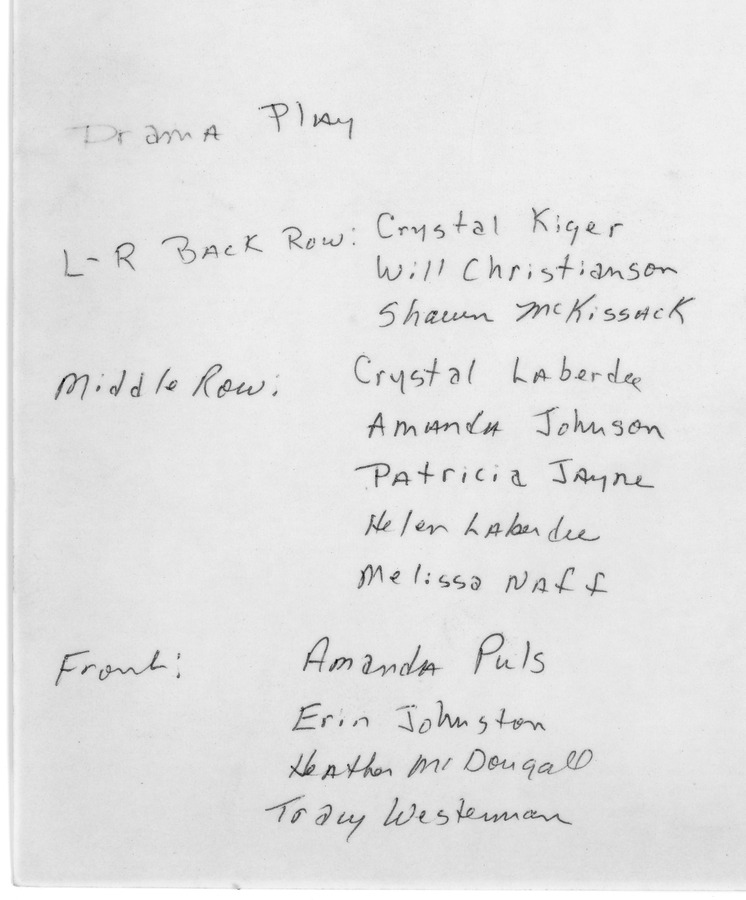 Drama Play
L-R Back Row: Crystal Kiger
Will Christianson
Shawn McKissack
Middle Row: Crystal Laberdee
Amanda Johnson
Patricia Jayne
Helen Laberdee
Melissa Naff
Front: Amanda Puls
Erin Johnston
Heather McDougall
Tracy Westerman